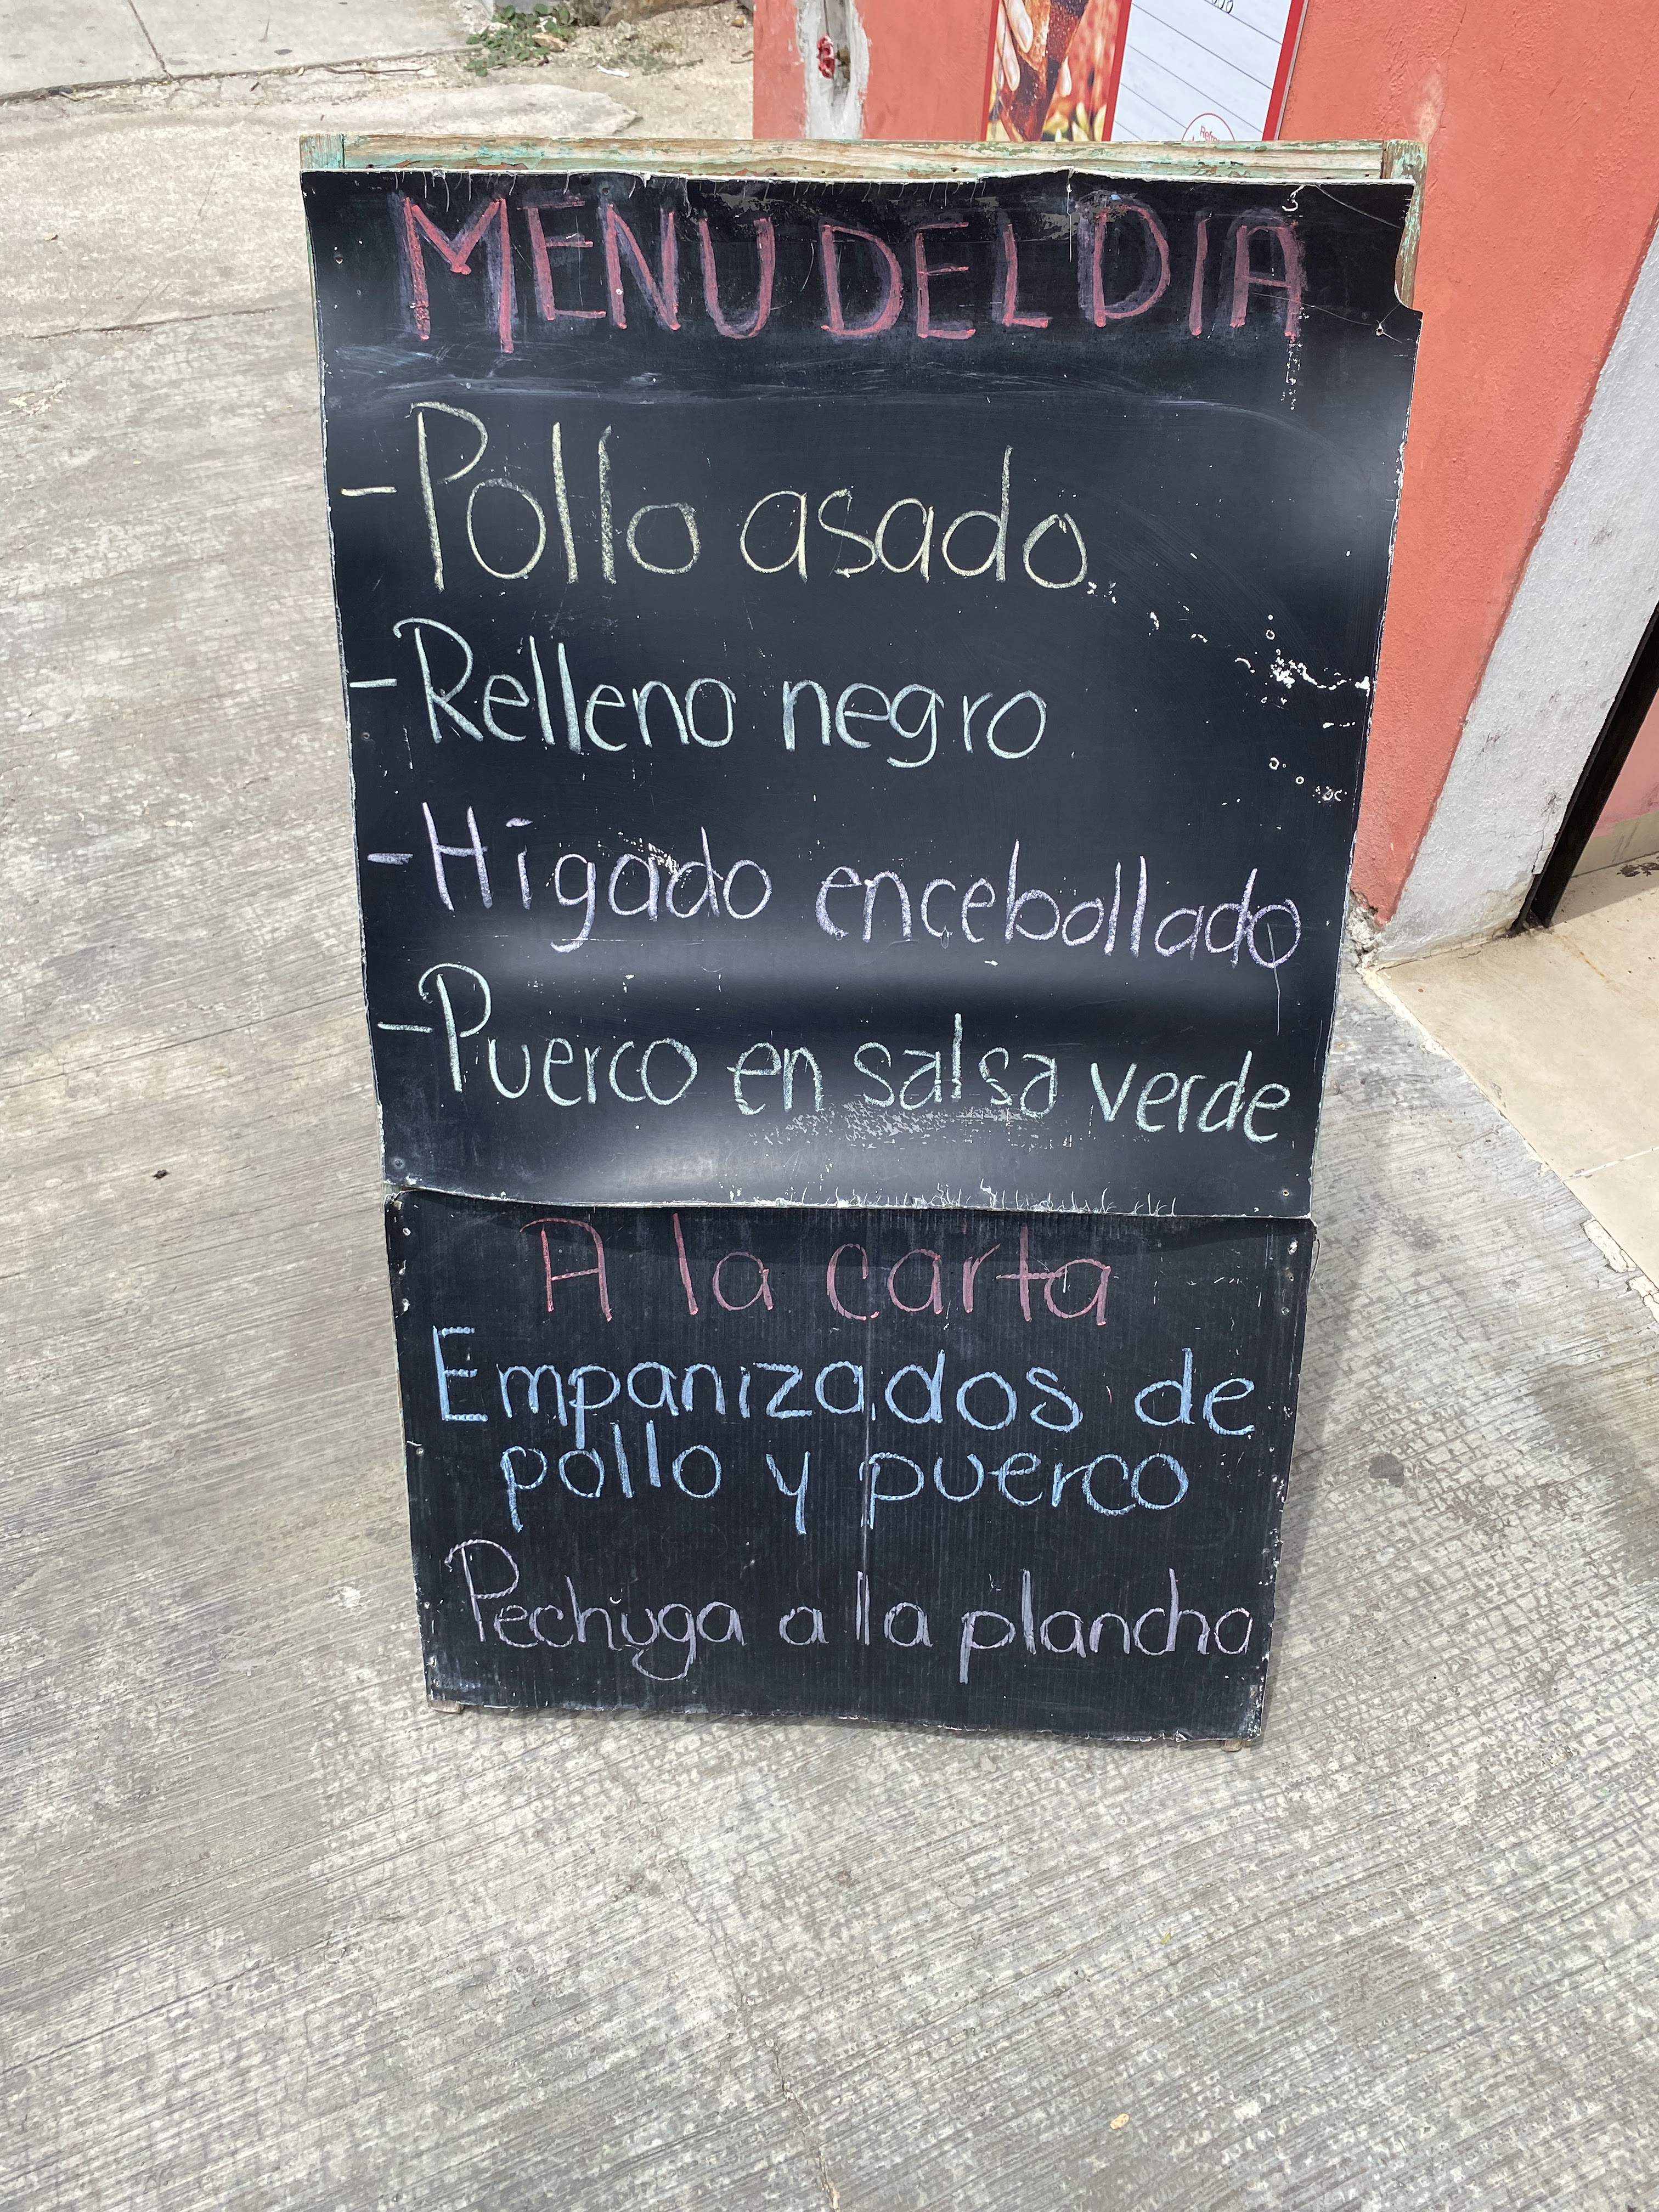 MENU DEL DIA
- Pollo asado.
- Relleno negro
- Hígado encebollado
- Puerco en salsa verde
A la carta
Empanizados de
pollo y puerco
Pechuga a la plancha